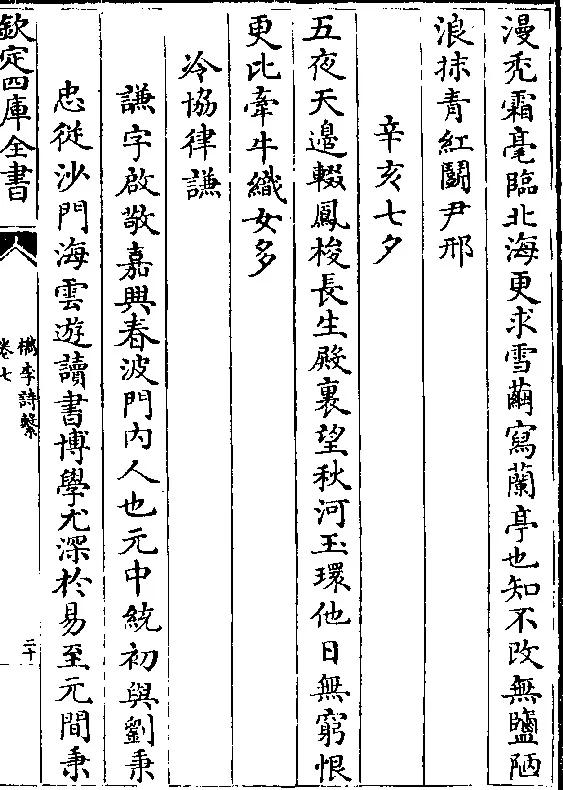 漫禿霜毫臨北海更求雪繭寫蘭亭也知不改無鹽陋
浪抹青紅鬬尹邢
辛亥七夕
五夜天邉輟鳳梭長生殿裏望秋河玉環他日無窮恨
更比牽牛織女多
冷協律謙
謙字啟敬嘉興春波門内人也元中統初與劉秉
忠從沙門海雲遊讀書博學尤深於易至元間秉
欽定四庫全書
檇李詩繫
卷七
二十